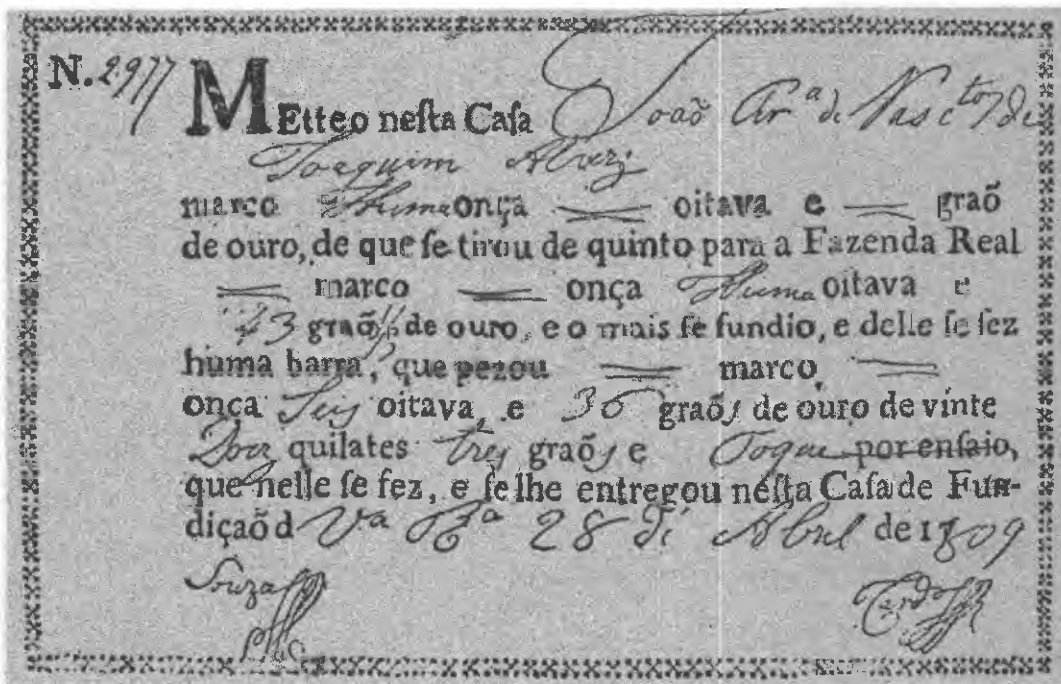 N. 2977
METteo neſta Caſa João Ar.ª de Nascto de
Joaquim Alvez
marco Huma onça oitava e graõ
de ouro, de que ſe tirou de quinto para a Fazenda Real
marco onça Huma oitava e
43 graõs de ouro, e o mais ſe fundio, e delle ſe fez
huma barra, que pezou marco,
onça Seis oitava, e 36 graõs de ouro de vinte
Doiz quilates tres graõs e Toque por enſaio,
que nelle ſe fez, e ſe lhe entregou neſta Caſa de Fun-
diçaõ d Vª Rª 28 de Abril de 1809
Souza Cardoso